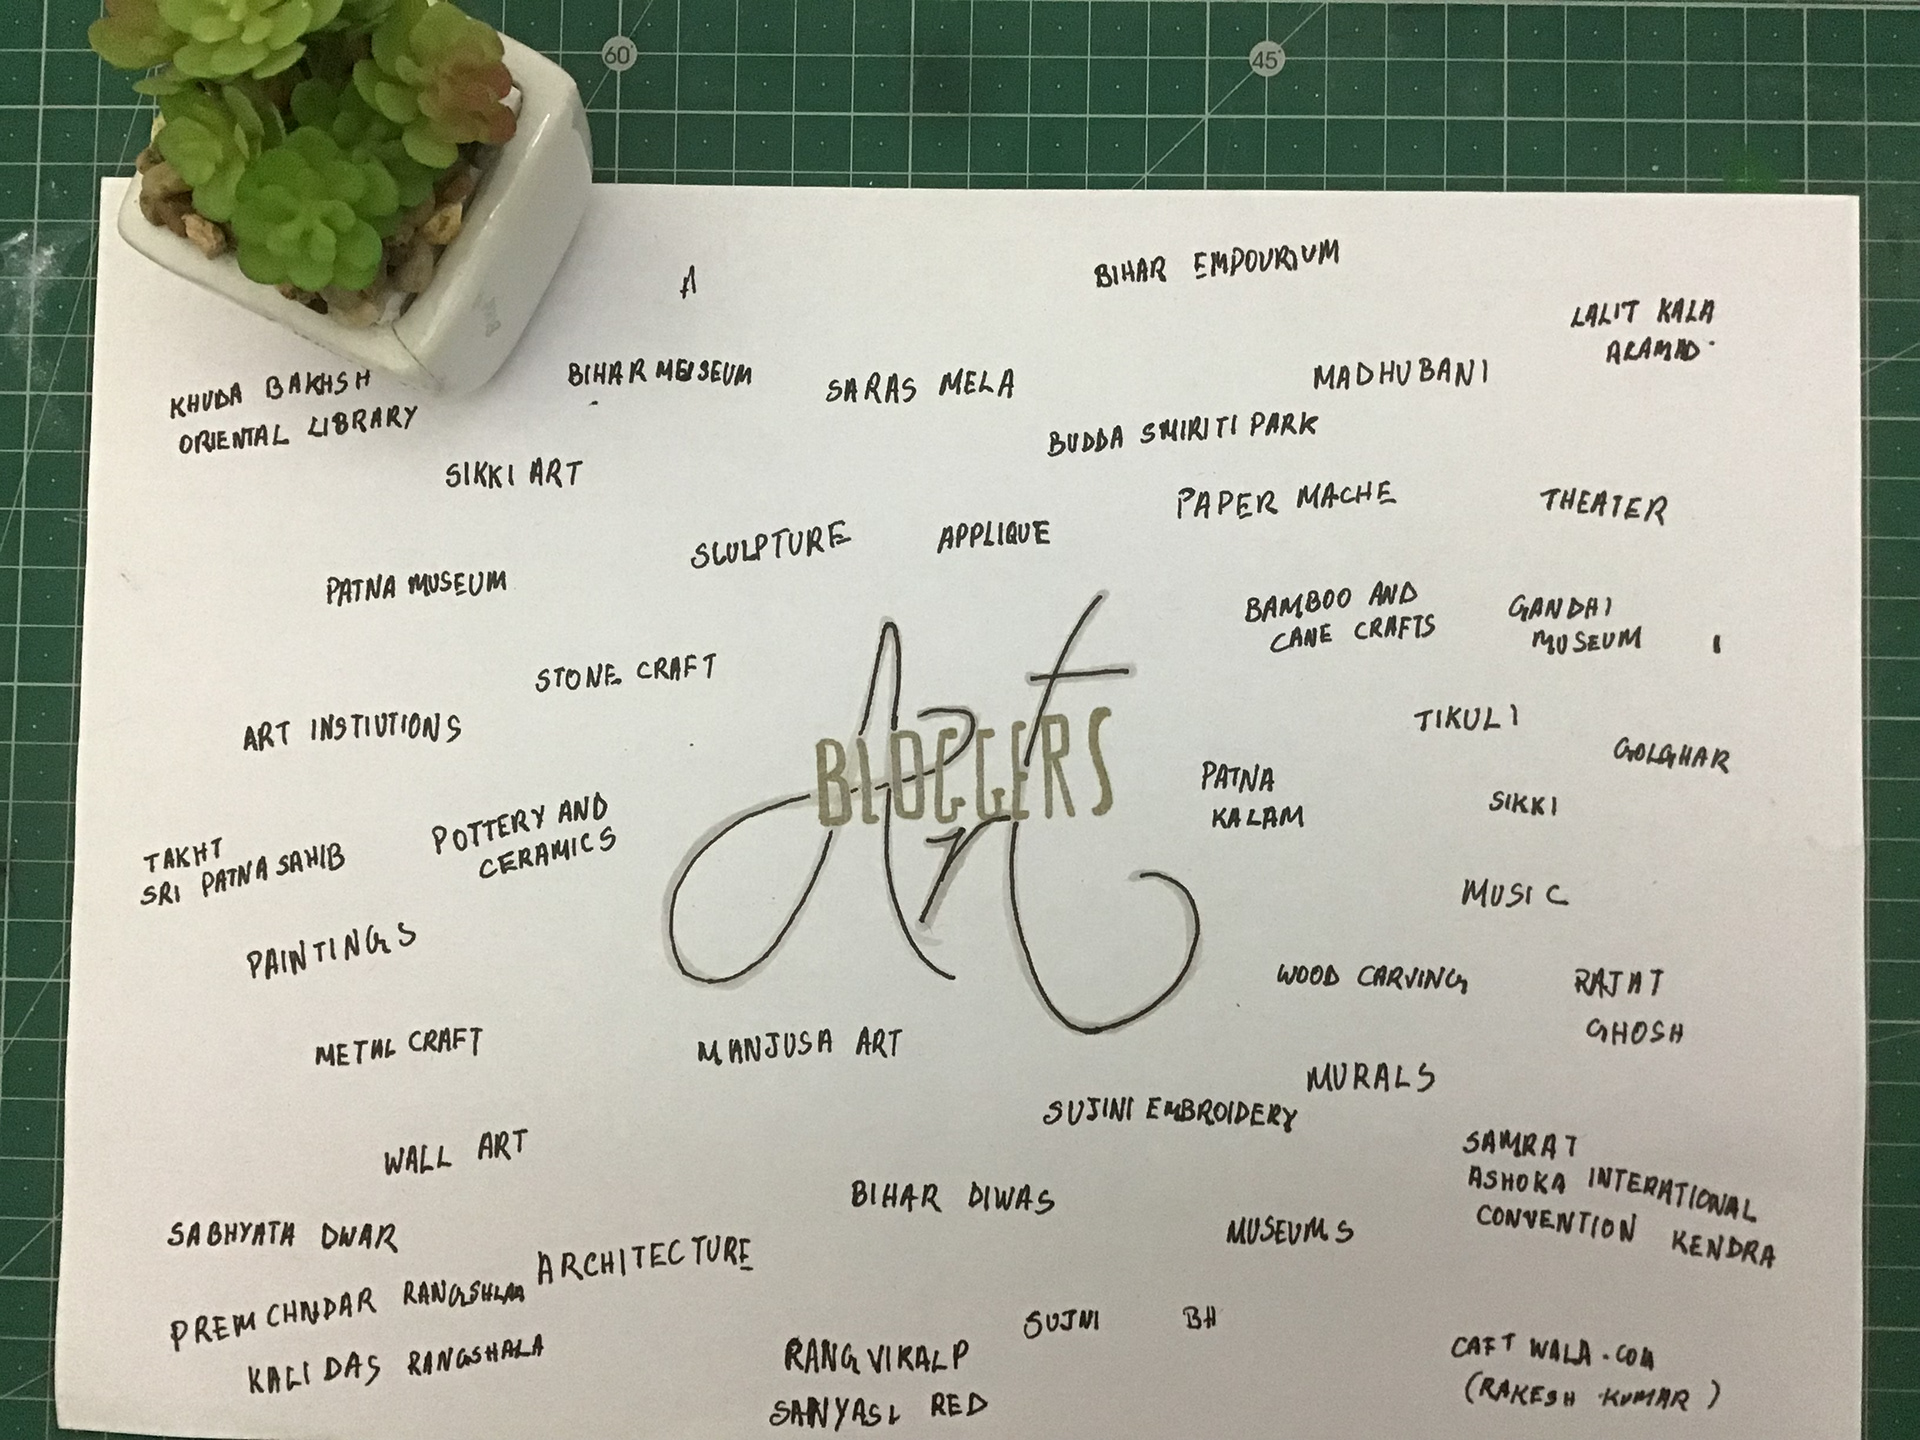 60°
45°
A
BIHAR EMPOURIUM
LALIT KALA
AKAMAD.
KHUDA BAKHSH
ORIENTAL LIBRARY
BIHAR MEUSEUM
SARAS MELA
MADHUBANI
BUDDA SMIRITI PARK
SIKKI ART
PAPER MACHE
THEATER
SCULPTURE
APPLIQUE
PATNA MUSEUM
BAMBOO AND
CANE CRAFTS
GANDHI
MUSEUM
STONE CRAFT
ART INSTIUTIONS
TIKULI
GOLGHAR
Art
BLOGGERS
PATNA
KALAM
SIKKI
POTTERY AND
CERAMICS
TAKHT
SRI PATNA SAHIB
MUSIC
PAINTINGS
WOOD CARVING
RAJAT
GHOSH
METAL CRAFT
MANJUSA ART
MURALS
SUJINI EMBROIDERY
WALL ART
SAMRAT
ASHOKA INTERATIONAL
CONVENTION KENDRA
BIHAR DIWAS
SABHYATA DWAR
MUSEUMS
ARCHITECTURE
PREM CHNDAR RANGSHLAA
SUJNI
BH
KALI DAS RANGSHALA
RANG VIKALP
SANYASI RED
CAFT WALA.COM
(RAKESH KUMAR)